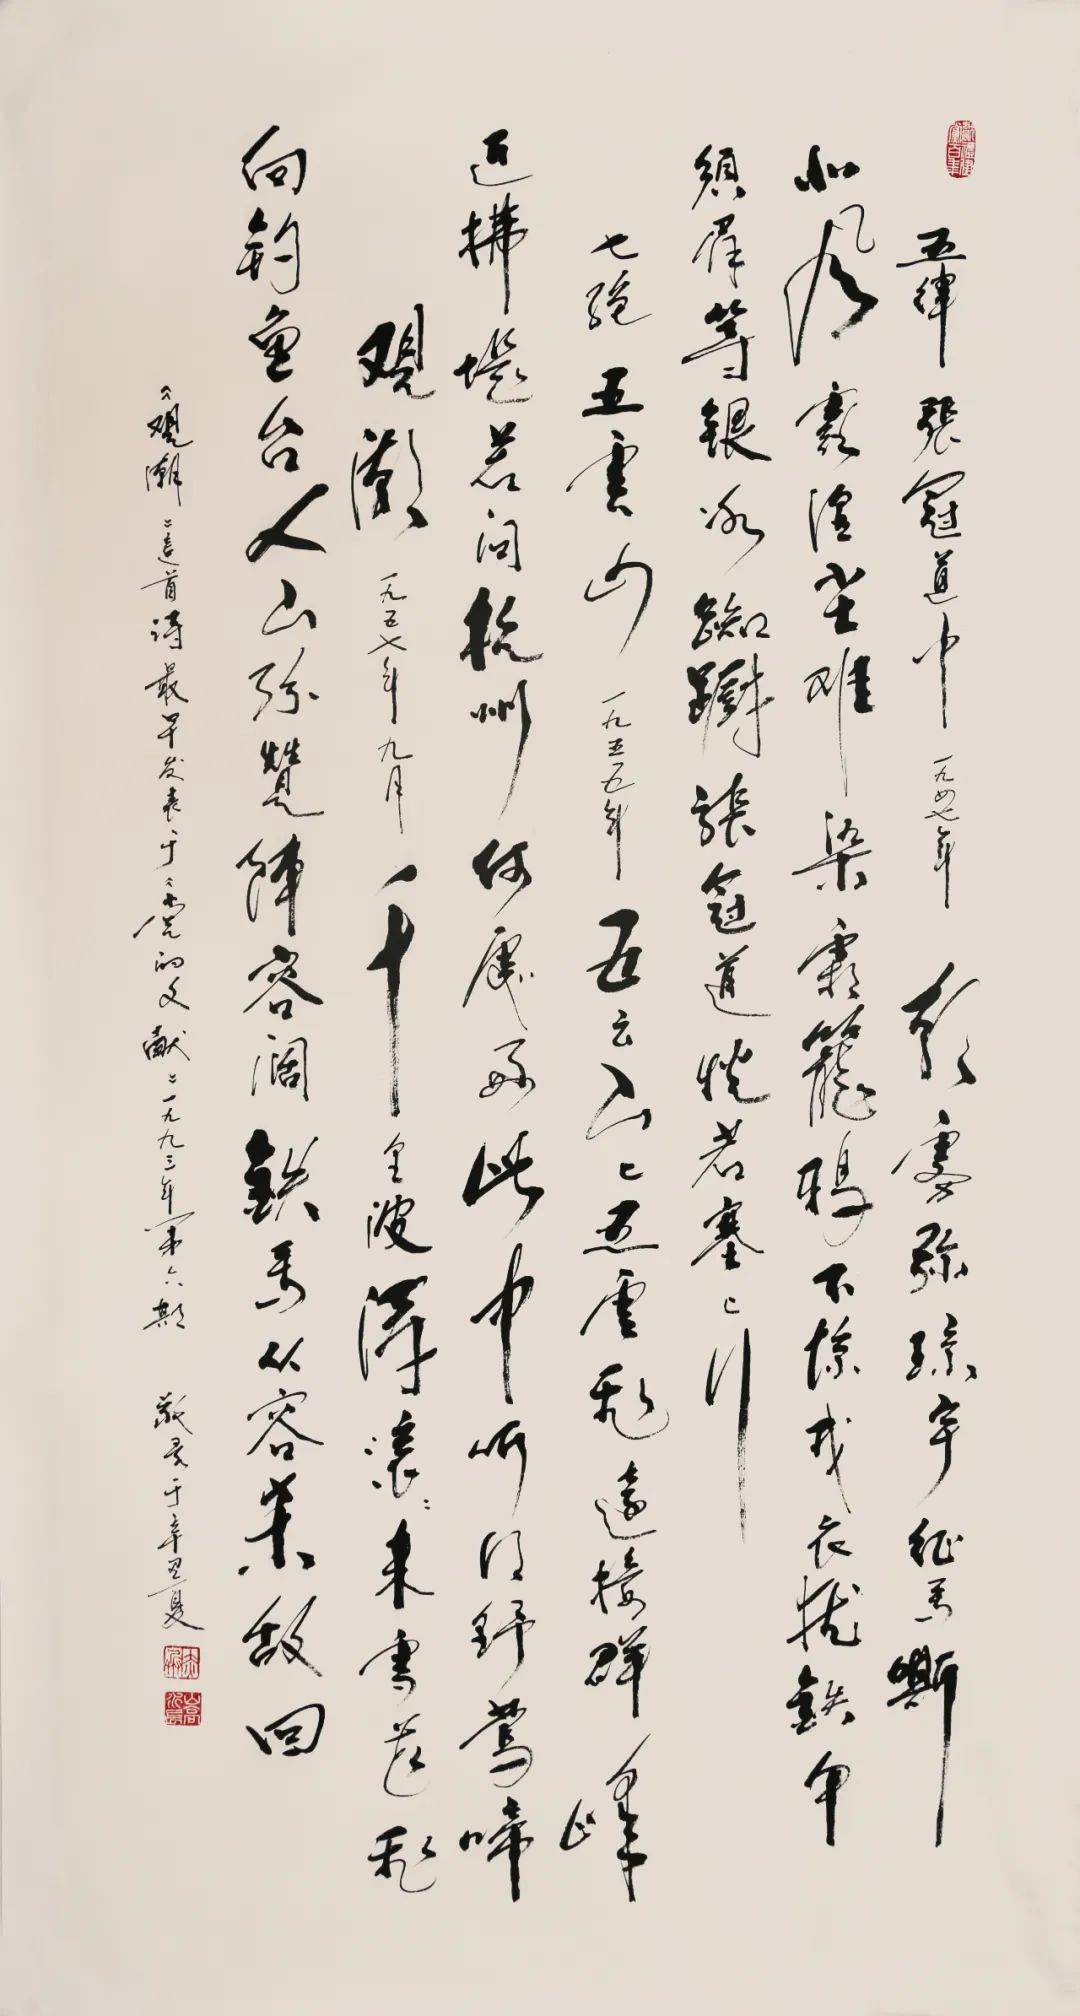 五律 張冠道中 一九四七年 朝霧弥琼宇征馬嘶
北风露湿尘难染霜籠鸦不惊戎衣犹鐵甲
須眉等銀冰踟蹰張冠道恍若塞上行
七絕 五雲山 一九五五年 五云山上五雲飛遠接群峰
近拂堤若问杭州何處好此中听得野莺啼
觀潮 一九五七年九月 千里波濤滚滚来雪花飛
向釣鱼台人山纷贊陣容阔鐵馬从容杀敵回
《觀潮》這首诗最早发表于《党的文献》一九九三年第六期 敬录于辛丑夏
山高水長